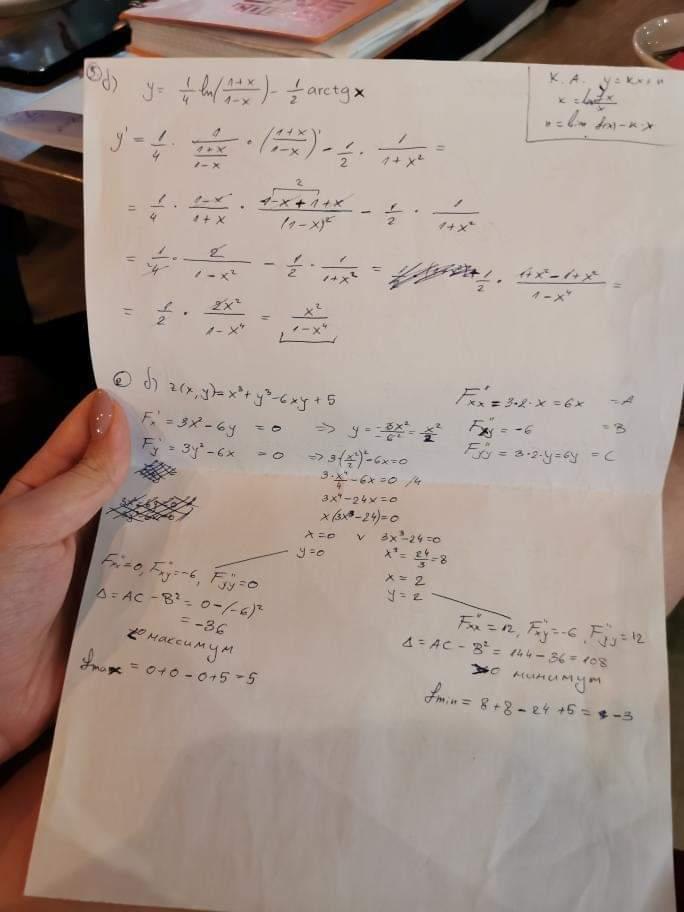 5 д) y = 1/4 ln((1+x)/(1-x)) - 1/2 arctgx
К. А. y = kx+n
y' = 1/4 · 1/((1+x)/(1-x)) · ((1+x)/(1-x))' - 1/2 · 1/(1+x²) =
= 1/4 · (1-x)/(1+x) · (1-x+1+x)/(1-x)² - 1/2 · 1/(1+x²)
2
= 1/4 · 2/(1-x²) - 1/2 · 1/(1+x²) = 1/2 · (1+x²-1+x²)/(1-x⁴) =
= 1/2 · 2x²/(1-x⁴) = x²/(1-x⁴)
б) z(x,y)=x³+y³-6xy+5
Fx' = 3x²-6y = 0 => y = -3x²/-6 = x²/2
Fy' = 3y²-6x = 0 => 3·(x²/2)²-6x=0
3·x⁴/4-6x=0 /4
3x⁴-24x=0
x(3x³-24)=0
x=0 v 3x³-24=0
y=0 x³=24/3=8
x=2
y=2
Fxx'' = 3·2·x=6x =A
Fxy'' = -6 =B
Fyy'' = 3·2·y=6y = C
Fxx''=0, Fxy''=-6, Fyy''=0
Δ=AC-B²=0-(-6)²
= -36
<0 максимум
fmax = 0+0-0+5=5
Fxx''=12, Fxy''=-6, Fyy''=12
Δ=AC-B²=144-36=108
>0 минимум
fmin = 8+8-24+5=-3